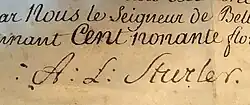 par Nous le Seigneur de Bele
nnant Cent nonante flo
A: L: Sturler.